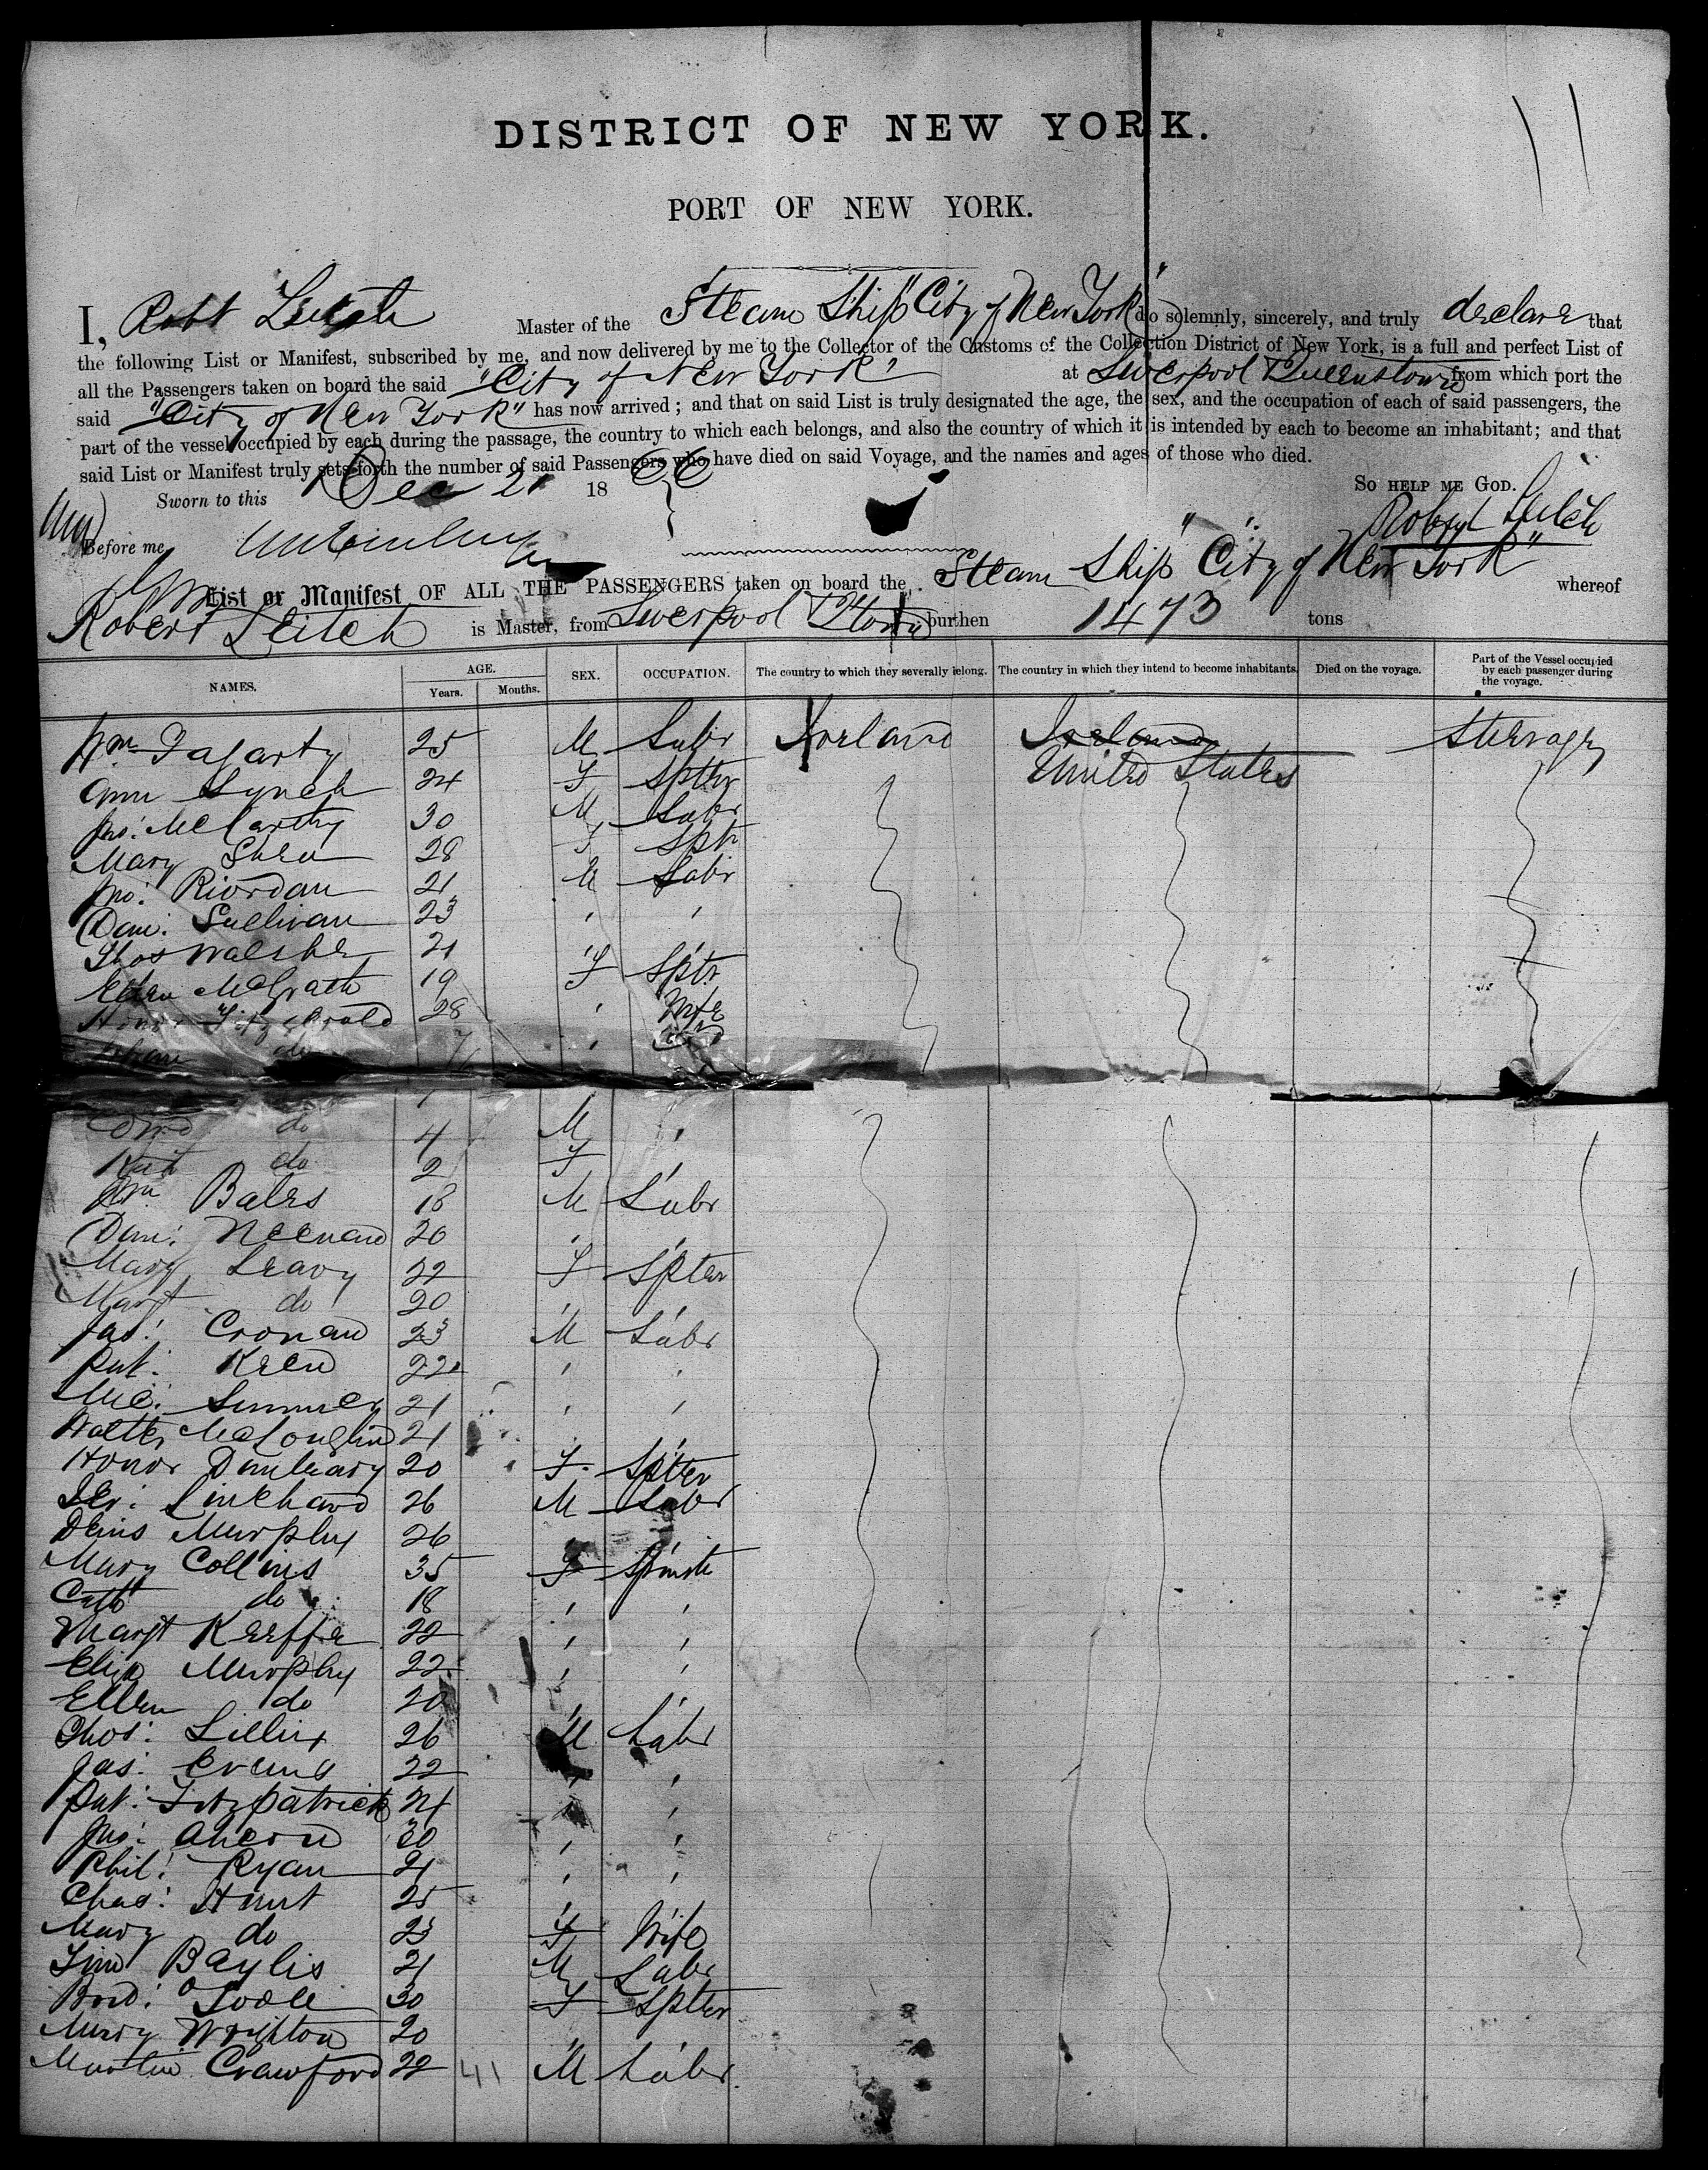 DISTRICT OF NEW YORK.
PORT OF NEW YORK.
I, Robt Leitch Master of the Steam Ship "City of New York" do solemnly, sincerely, and truly declare that
the following List or Manifest, subscribed by me, and now delivered by me to the Collector of the Customs of the Collection District of New York, is a full and perfect List of
all the Passengers taken on board the said "City of New York" at Liverpool & Queenstown from which port the
said "City of New York" has now arrived; and that on said List is truly designated the age, the sex, and the occupation of each of said passengers, the
part of the vessel occupied by each during the passage, the country to which each belongs, and also the country of which it is intended by each to become an inhabitant; and that
said List or Manifest truly sets forth the number of said Passengers who have died on said Voyage, and the names and ages of those who died.
Sworn to this Dec 21 18 SO HELP ME GOD.
Before me Robert Leitch
List or Manifest OF ALL THE PASSENGERS taken on board the Steam Ship "City of New York" whereof
Robert Leitch is Master, from Liverpool & burthen 1473 tons
NAMES. AGE. Years. Months. SEX. OCCUPATION. The country to which they severally belong. The country in which they intend to become inhabitants. Died on the voyage. Part of the Vessel occupied by each passenger during the voyage.
Wm Fagarty 25 M Labr Ireland Ireland Steerage
Ann Lynch 24 F Spter United States
Jno: McCarthy 30 M Labr
Mary Shea 28 F Sptr
Jno: Riordan 21 M Labr
Danl: Sullivan 23 ' '
Thos Walshe 21 '
Ellen McGrath 19 F Sptr
Honor Fitzgerald 28 ' Wife
do '
do 4 M '
Kat do 2 F '
Wm Bales 18 M Labr
Danl: Neenan 20 ' '
Mary Leavy 22 F Spter
Margt do 20 ' '
Jas: Cronan 23 M Labr
Pat: Keen 22 ' '
Mic: 21 ' '
Walter McLoughlin 21 ' '
Honor Dunleavy 20 F Spter
Jer: Linehand 26 M Labr
Denis Murphy 26 '
Mary Collins 35 F Spinstr
Cath do 18 ' '
Margt Keeffe 22 ' '
Eliza Murphy 22 ' '
Ellen do 20 ' '
Thos: Lillis 26 M Labr
Jas: Evans 22 ' '
Pat: Fitzpatrick 21 ' '
Jno: Ahern 30 ' '
Phil: Ryan 21 ' '
Chas: Hunt 25 '
Mary do 23 F Wife
Tim Baylis 21 M Labr
Brid: O'Toole 30 F Spter
Mary Wrighton 20 ' '
Martin Crawford 22 41 M Labr.